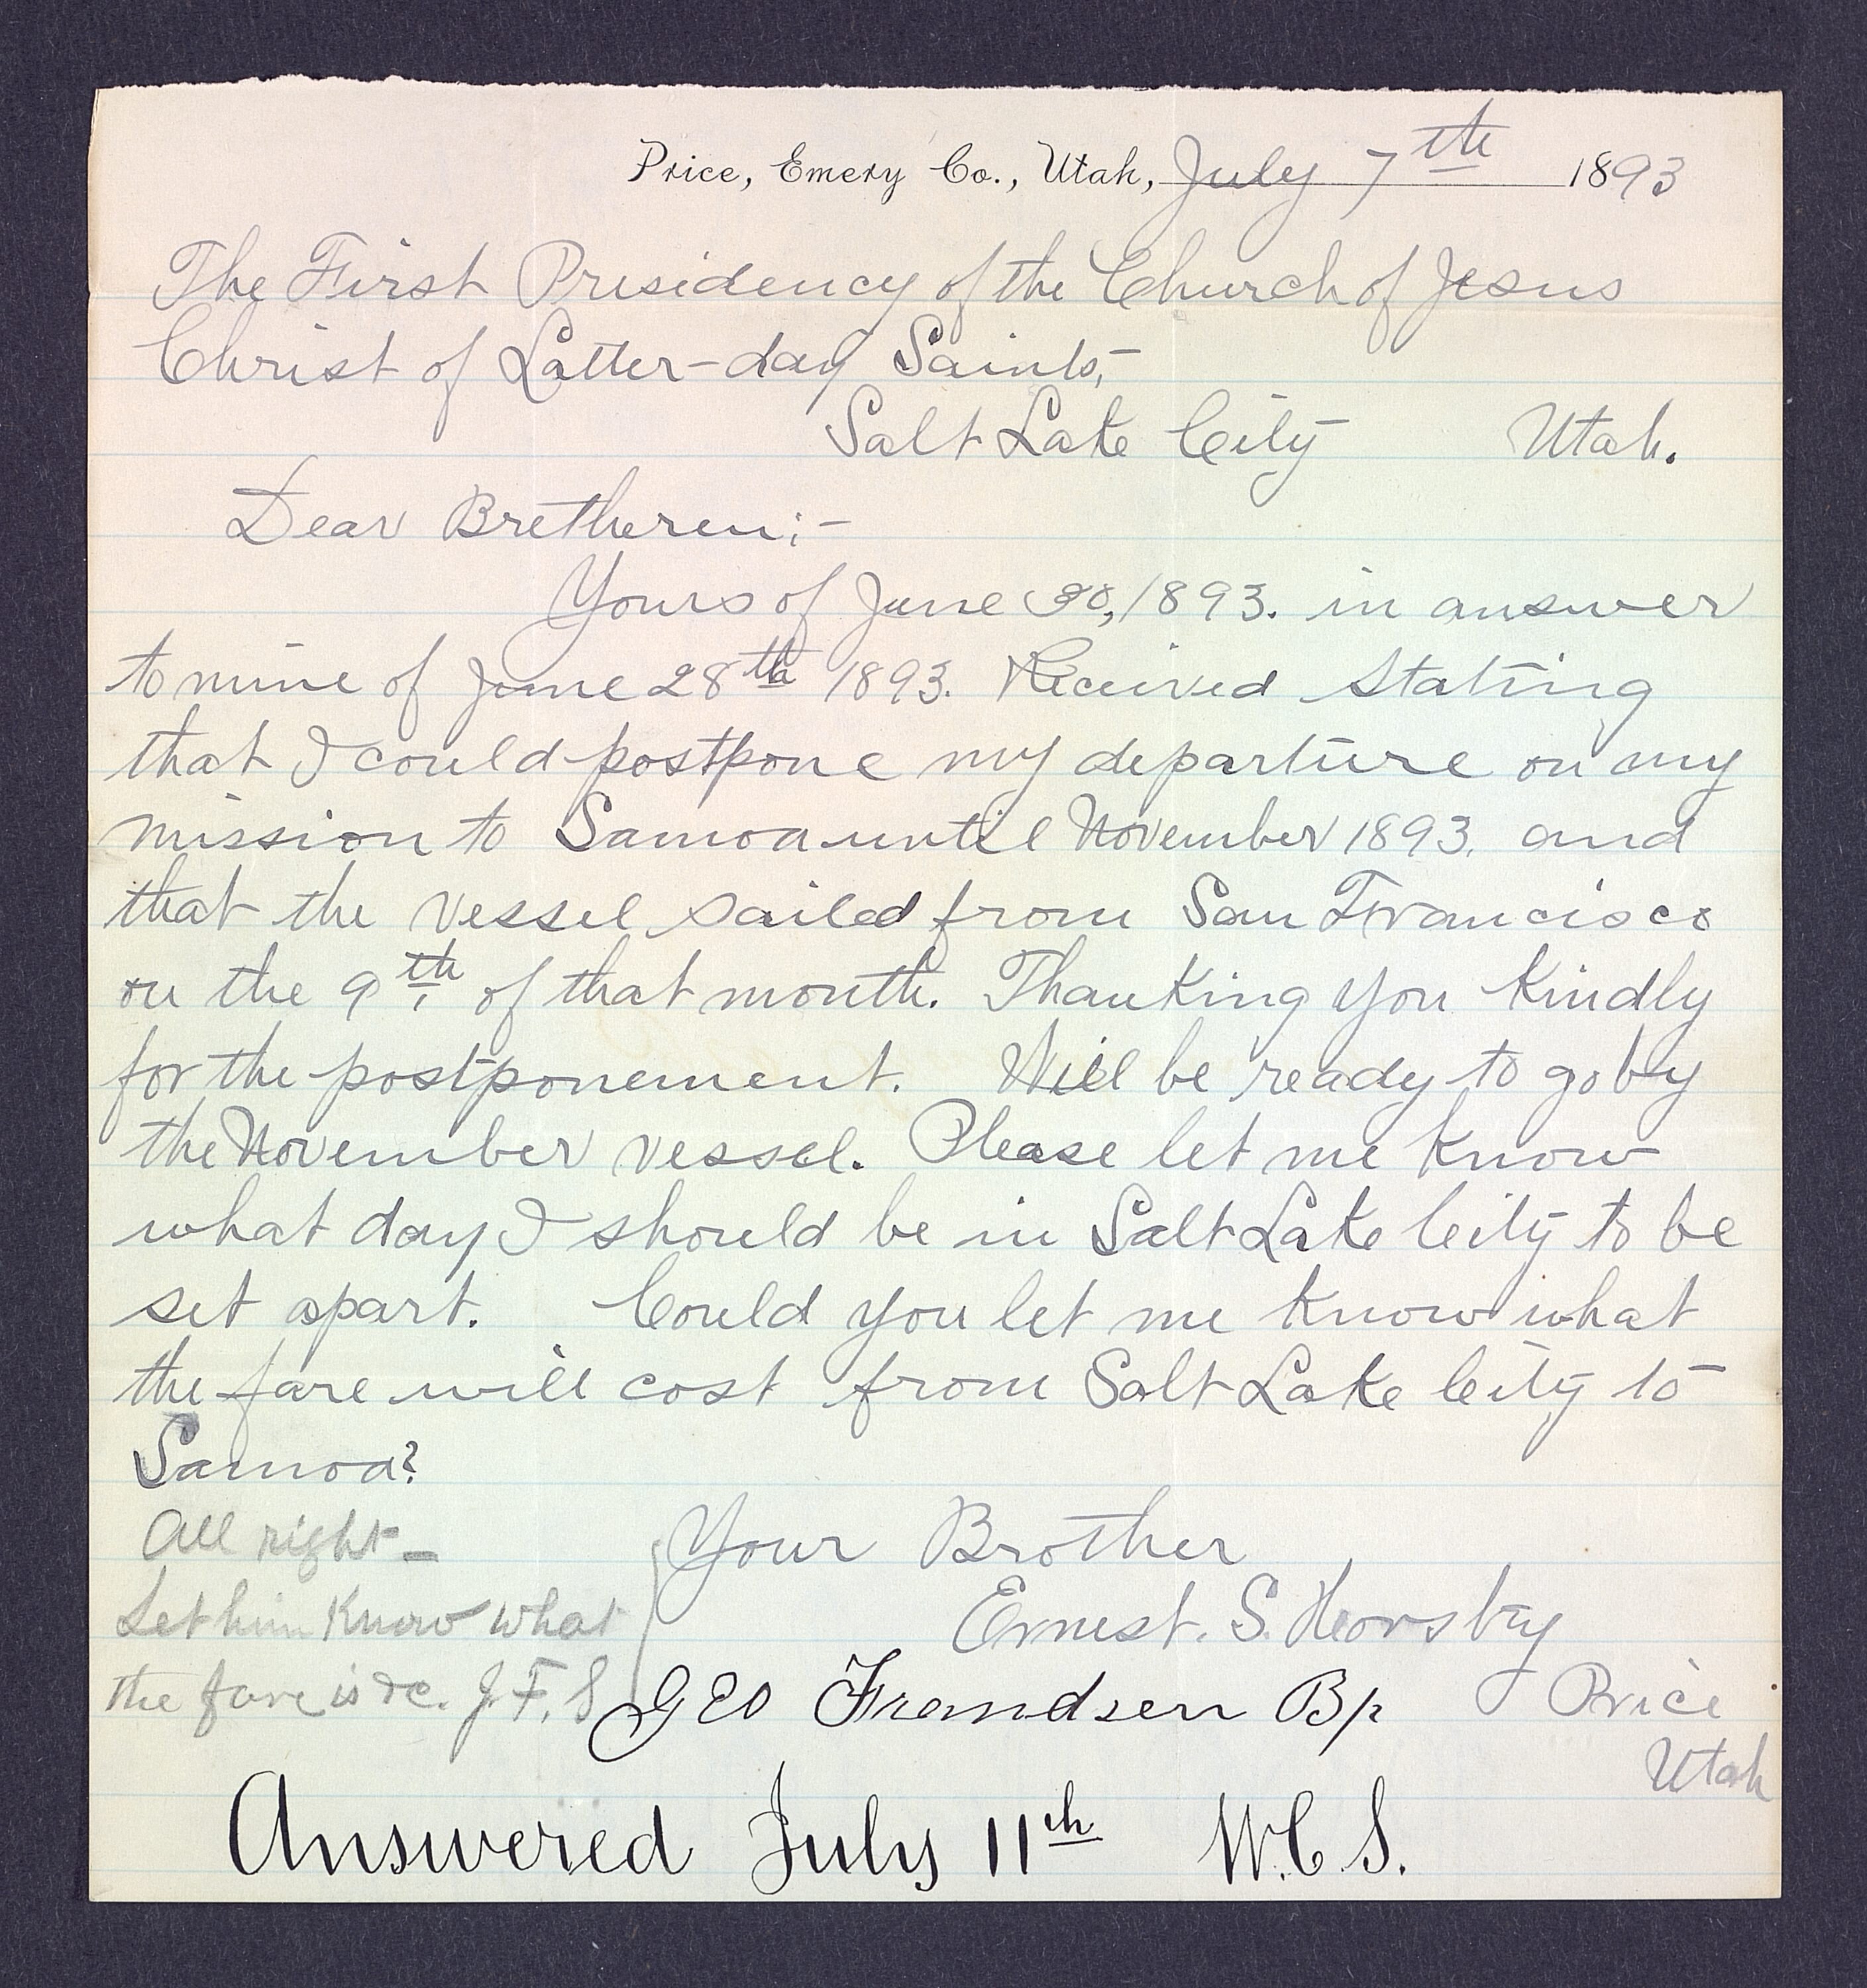 Price, Emery Co., Utah, July 7th 1893
The First Presidency of the Church of Jesus
Christ of Latter-day Saints,-
Salt Lake City Utah.
Dear Bretheren;-
Yours of June 30, 1893. in answer
to mine of June 28th 1893. Received Stating
that I could postpone my departure on my
mission to Samoa until November 1893. and
that the vessel sailed from San Francisco
on the 9th. of that month. Thanking you Kindly
for the postponement. Will be ready to go by
the November vessel. Please let me Know
what day I should be in Salt Lake City to be
set apart. Could you let me Know what
the fare will cost from Salt Lake City to
Samoa?
Your Brother
Ernest. S. Horsley
Price
Utah
All right -
Let him Know what
the fare is &c. J. F. S
Geo Frandsen Bp
Answered July 11th W.C.S.